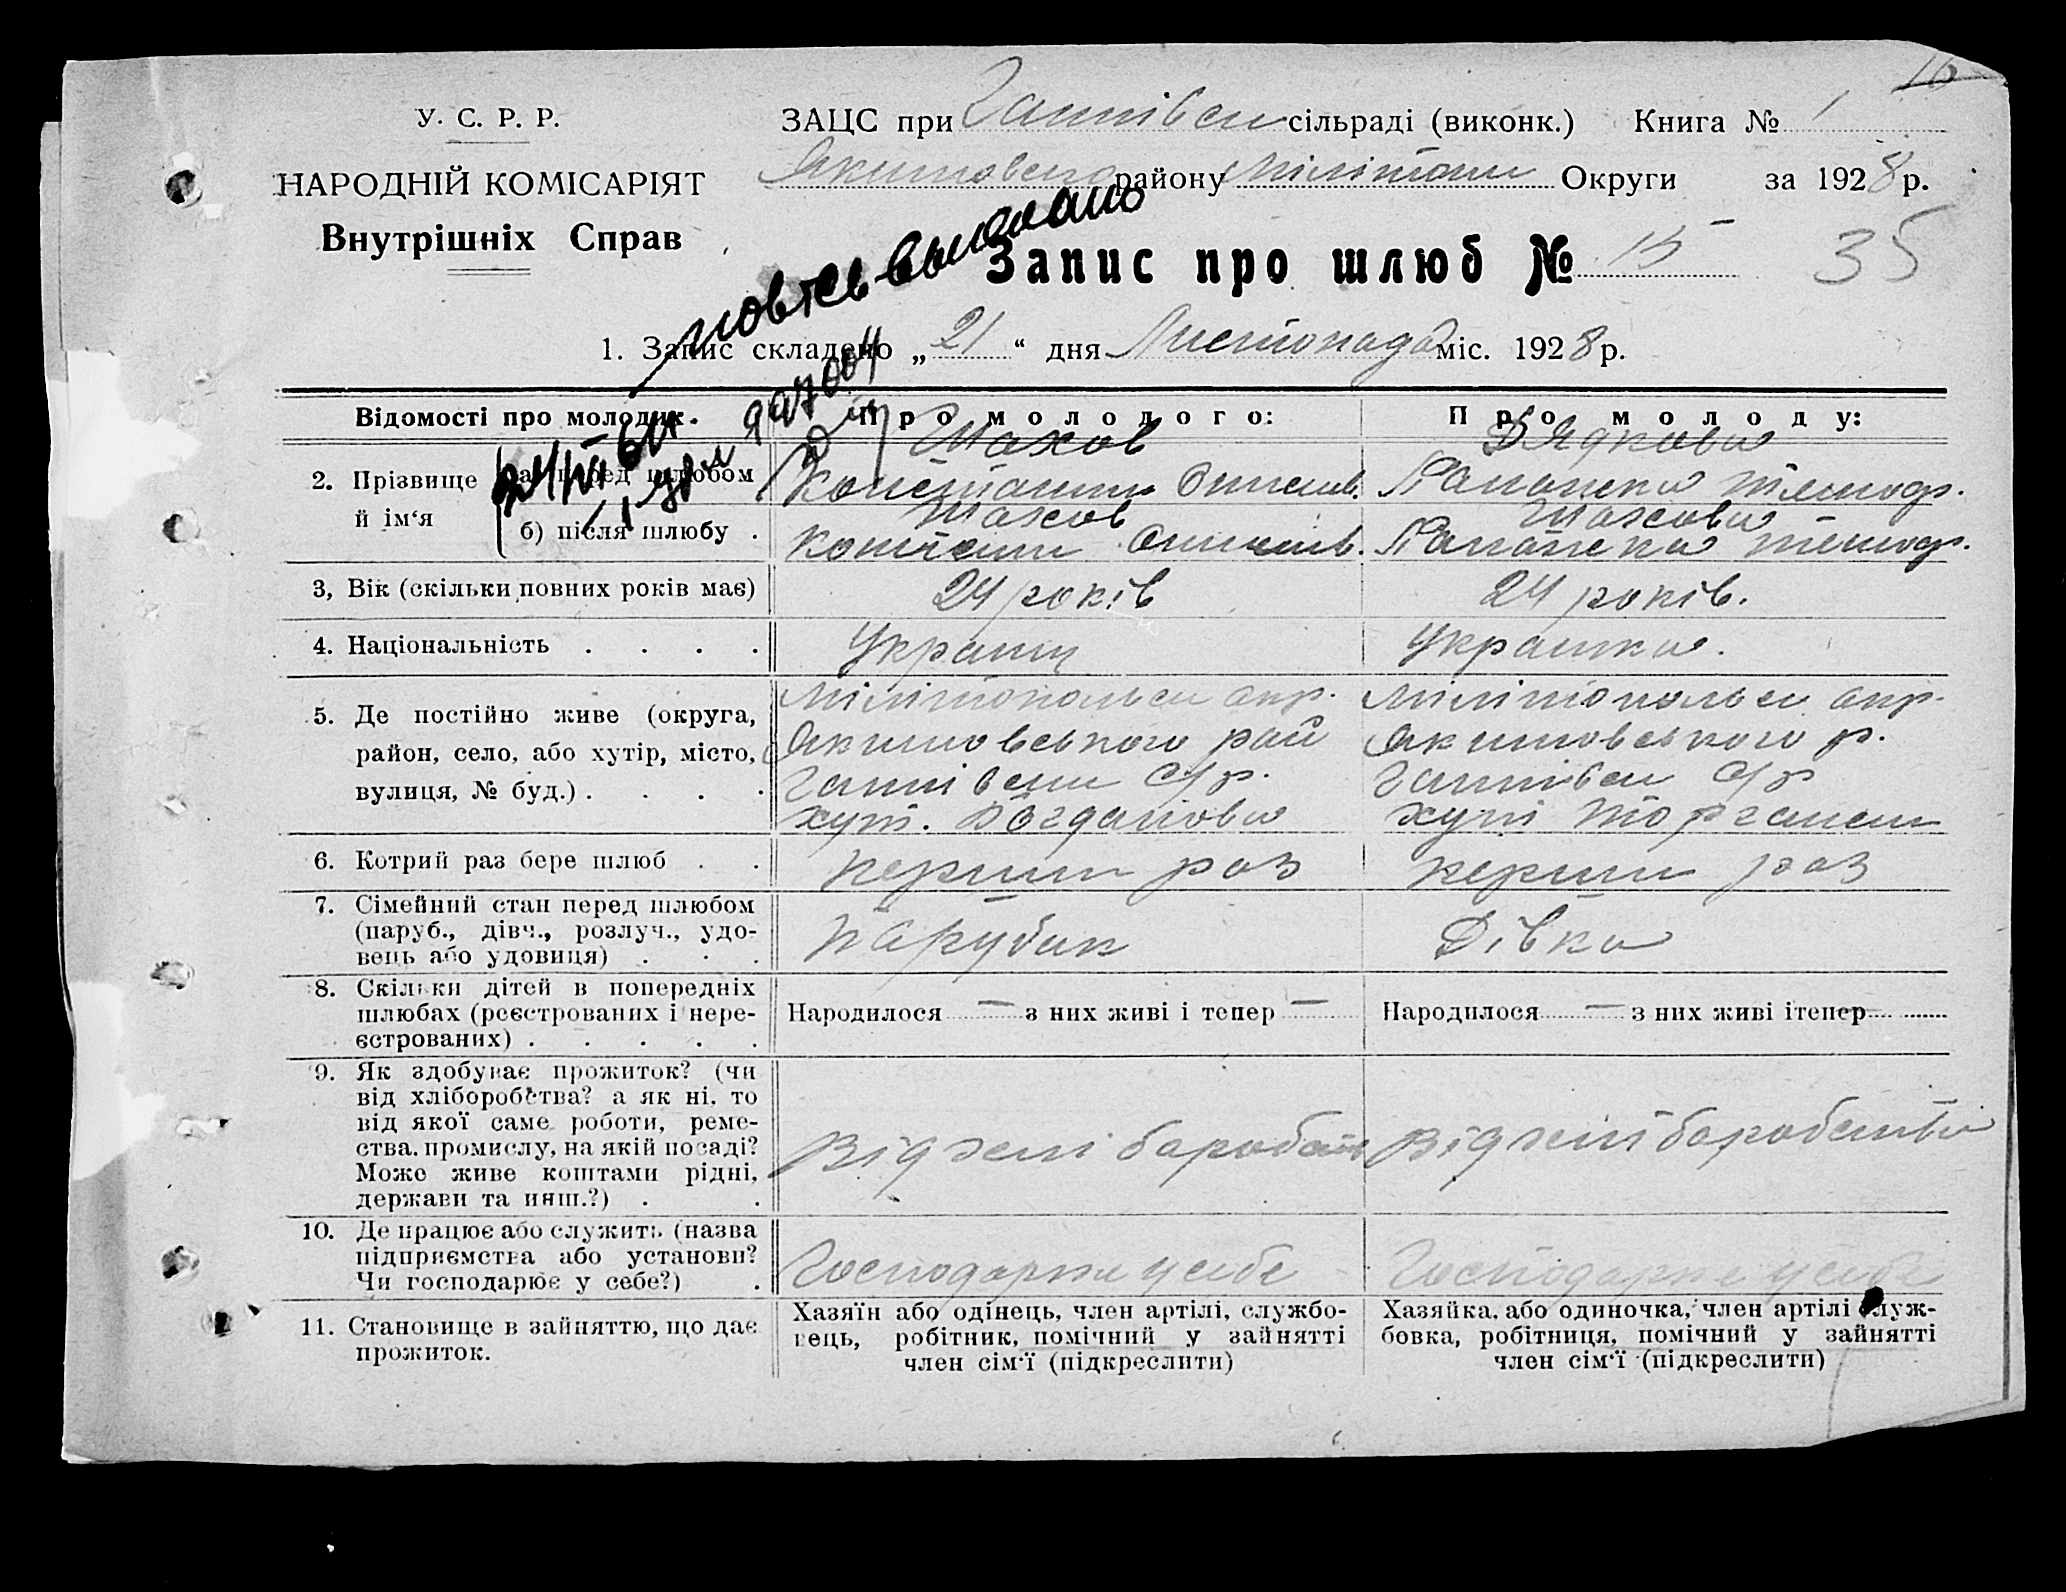 16
У. С. Р. Р.
НАРОДНІЙ КОМІСАРІЯТ
Внутрішніх Справ
ЗАЦС при Ганнівськ сільраді (виконк.) Книга № 1
Якимовського району Мелітоп Округи за 1928 р.
Запис про шлюб № 15 35
1. Запис складено „ 21 “ дня Листопада міс. 1928 р.
Відомості про молодих. Про молодого: Про молоду:
2. Прізвище й ім‘я
а) перед шлюбом Шахов Дядкова
Константин
б) після шлюбу . Шахов Шахова
3, Вік (скільки повних років має) 24 років 24 років.
4. Національність . . . . Українц Українка.
5. Де постійно живе (округа,
район, село, або хутір, місто,
вулиця, № буд.) . . . .
Мілітопольськ окр. Мілітопольськ окр.
Якимовського рай Якимовського р.
Ганнівськ с/р. Ганнівськ с/р
хут. Богдановка хут
6. Котрий раз бере шлюб . . перший раз перший раз
7. Сімейний стан перед шлюбом
(паруб., дівч., розлуч., удо-
вець або удовиця) . . .
Парубок Дівка
8. Скільки дітей в попередніх
шлюбах (реєстрованих і нере-
єстрованих) . . . . .
Народилося — з них живі і тепер — Народилося — з них живі ітепер
9. Як здобуває прожиток? (чи
від хліборобства? а як ні. то
від якої саме роботи, реме-
ства. промислу, на якій посаді?
Може живе коштами рідні,
держави та инш.?) . .
Від хліборобств Від хліборобства
10. Де працює або служить (назва
підприємства або установи?
Чи господарює у себе?) .
Господарює у себе Господарює у себе
11. Становище в зайняттю, що дає
прожиток.
Хазяїн або одінець, член артілі, службо-
вець, робітник, помічний у зайнятті
член сім‘ї (підкреслити)
Хазяйка, або одиночка, член артілі служ-
бовка, робітниця, помічний у зайнятті
член сім‘ї (підкреслити)